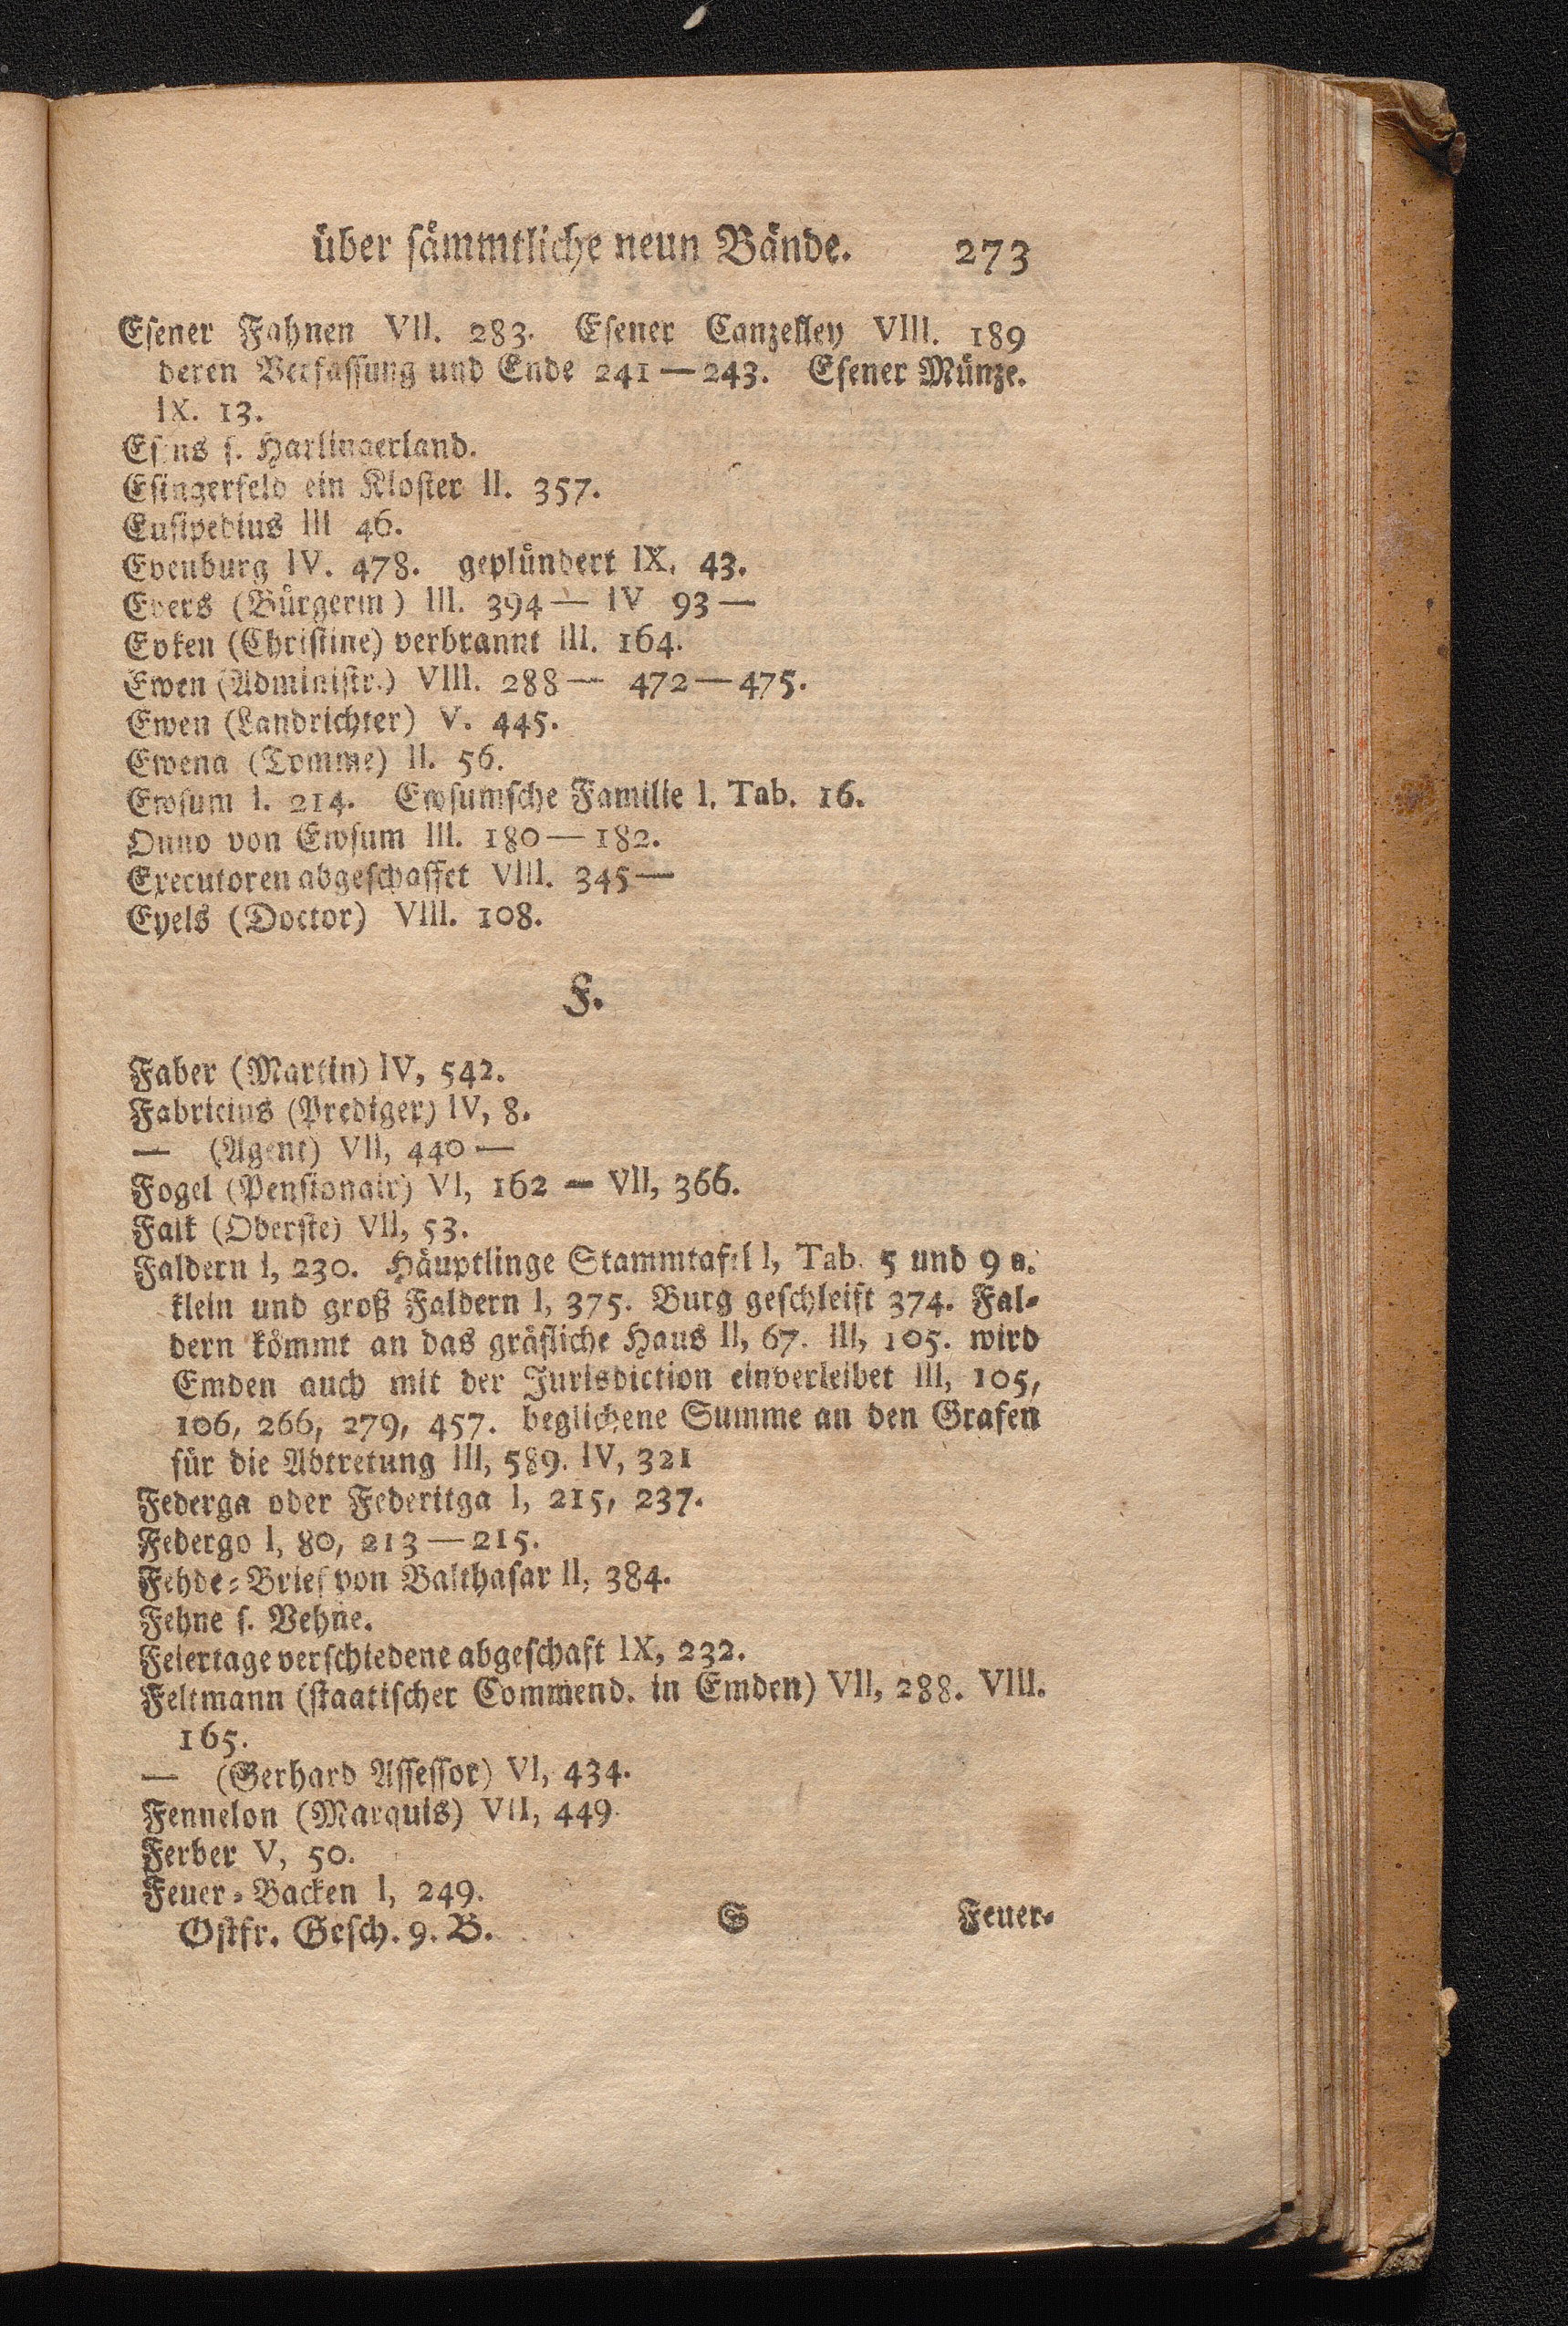 über ſämmtliche neun Bände. 273
Eſener Fahnen VII. 283. Eſener Canzelley VIII. 189
deren Verfaſſung und Ende 241—243. Eſener Münze.
IX. 13.
Eſens ſ. Harlingerland.
Eſingerfeld ein Kloſter II. 357.
Euſipedius III 46.
Evenburg IV. 478. geplündert IX. 43.
Evers (Bürgerm) III. 394— IV 93—
Evken (Chriſtine) verbrannt III. 164.
Ewen (Adminiſtr.) VIII. 288— 472—475.
Ewen (Landrichter) V. 445.
Ewena (Tomme) II. 56.
Ewſum I. 214. Ewſumſche Familie I. Tab. 16.
Onno von Ewſum III. 180—182.
Executoren abgeſchaffet VIII. 345—
Eyels (Doctor) VIII. 108.
F.
Faber (Martin) IV, 542.
Fabricius (Prediger) IV, 8.
— (Agent) VII, 440—
Fogel (Penſionair) VI, 162 — VII, 366.
Falk (Oberſte) VII, 53.
Faldern I, 230. Häuptlinge Stammtafel I, Tab. 5 und 9 a.
klein und groß Faldern I, 375. Burg geſchleift 374. Fal⸗
dern kömmt an das gräfliche Haus II, 67. III, 105. wird
Emden auch mit der Jurisdiction einverleibet III, 105,
106, 266, 279, 457. beglichene Summe an den Grafen
für die Abtretung III, 589. IV, 321
Federga oder Federitga I, 215, 237.
Federgo I, 80, 213—215.
Fehde⸗Brief von Balthaſar II, 384.
Fehne ſ. Vehne.
Feiertage verſchiedene abgeſchaft IX, 232.
Feltmann (ſtaatiſcher Commend. in Emden) VII, 288. VIII.
165.
— (Gerhard Aſſeſſor) VI, 434.
Fennelon (Marquis) VII, 449.
Ferber V, 50.
Feuer⸗Backen I, 249.
Oſtfr. Geſch. 9. B. S Feuer⸗